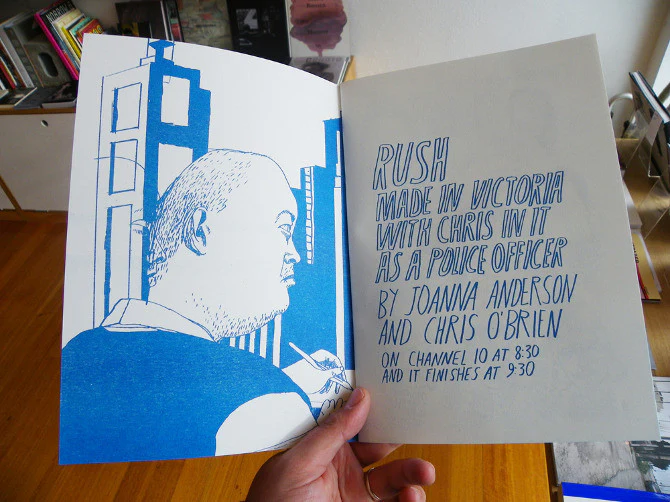 RUSH
MADE IN VICTORIA
WITH CHRIS IN IT
AS A POLICE OFFICER
BY JOANNA ANDERSON
AND CHRIS O'BRIEN
ON CHANNEL 10 AT 8:30
AND IT FINISHES AT 9:30